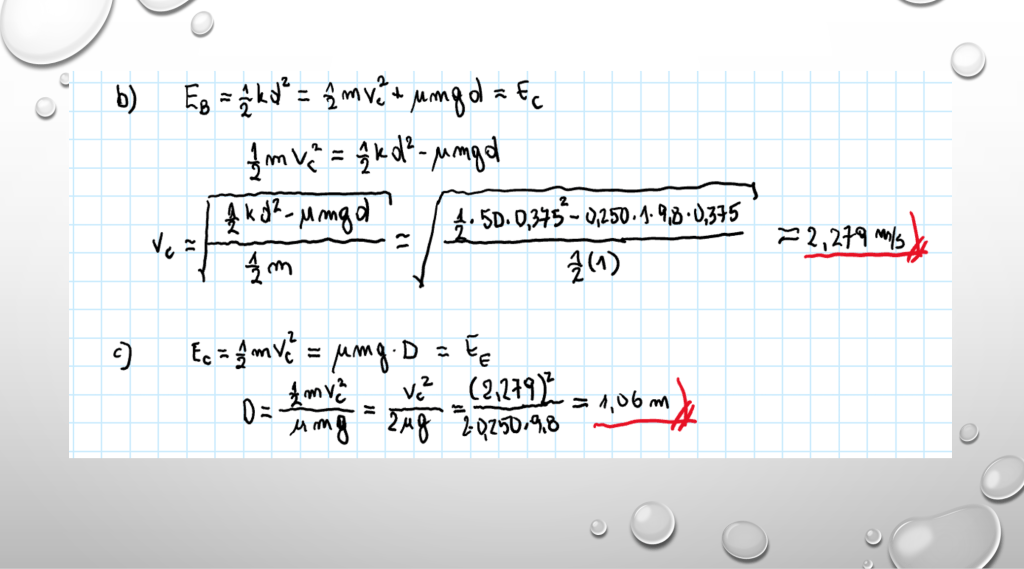 b) E_B = ½kd² = ½mv_c² + μmgd = E_c
½mv_c² = ½kd² - μmgd
v_c = √((½kd² - μmgd)/(½m)) = √((½·50·0,375² - 0,250·1·9,8·0,375)/(½(1))) = 2,279 m/s
c) E_c = ½mv_c² = μmg·D = E_E
D = (½mv_c²)/(μmg) = v_c²/(2μg) = (2,279)²/(2·0,250·9,8) = 1,06 m